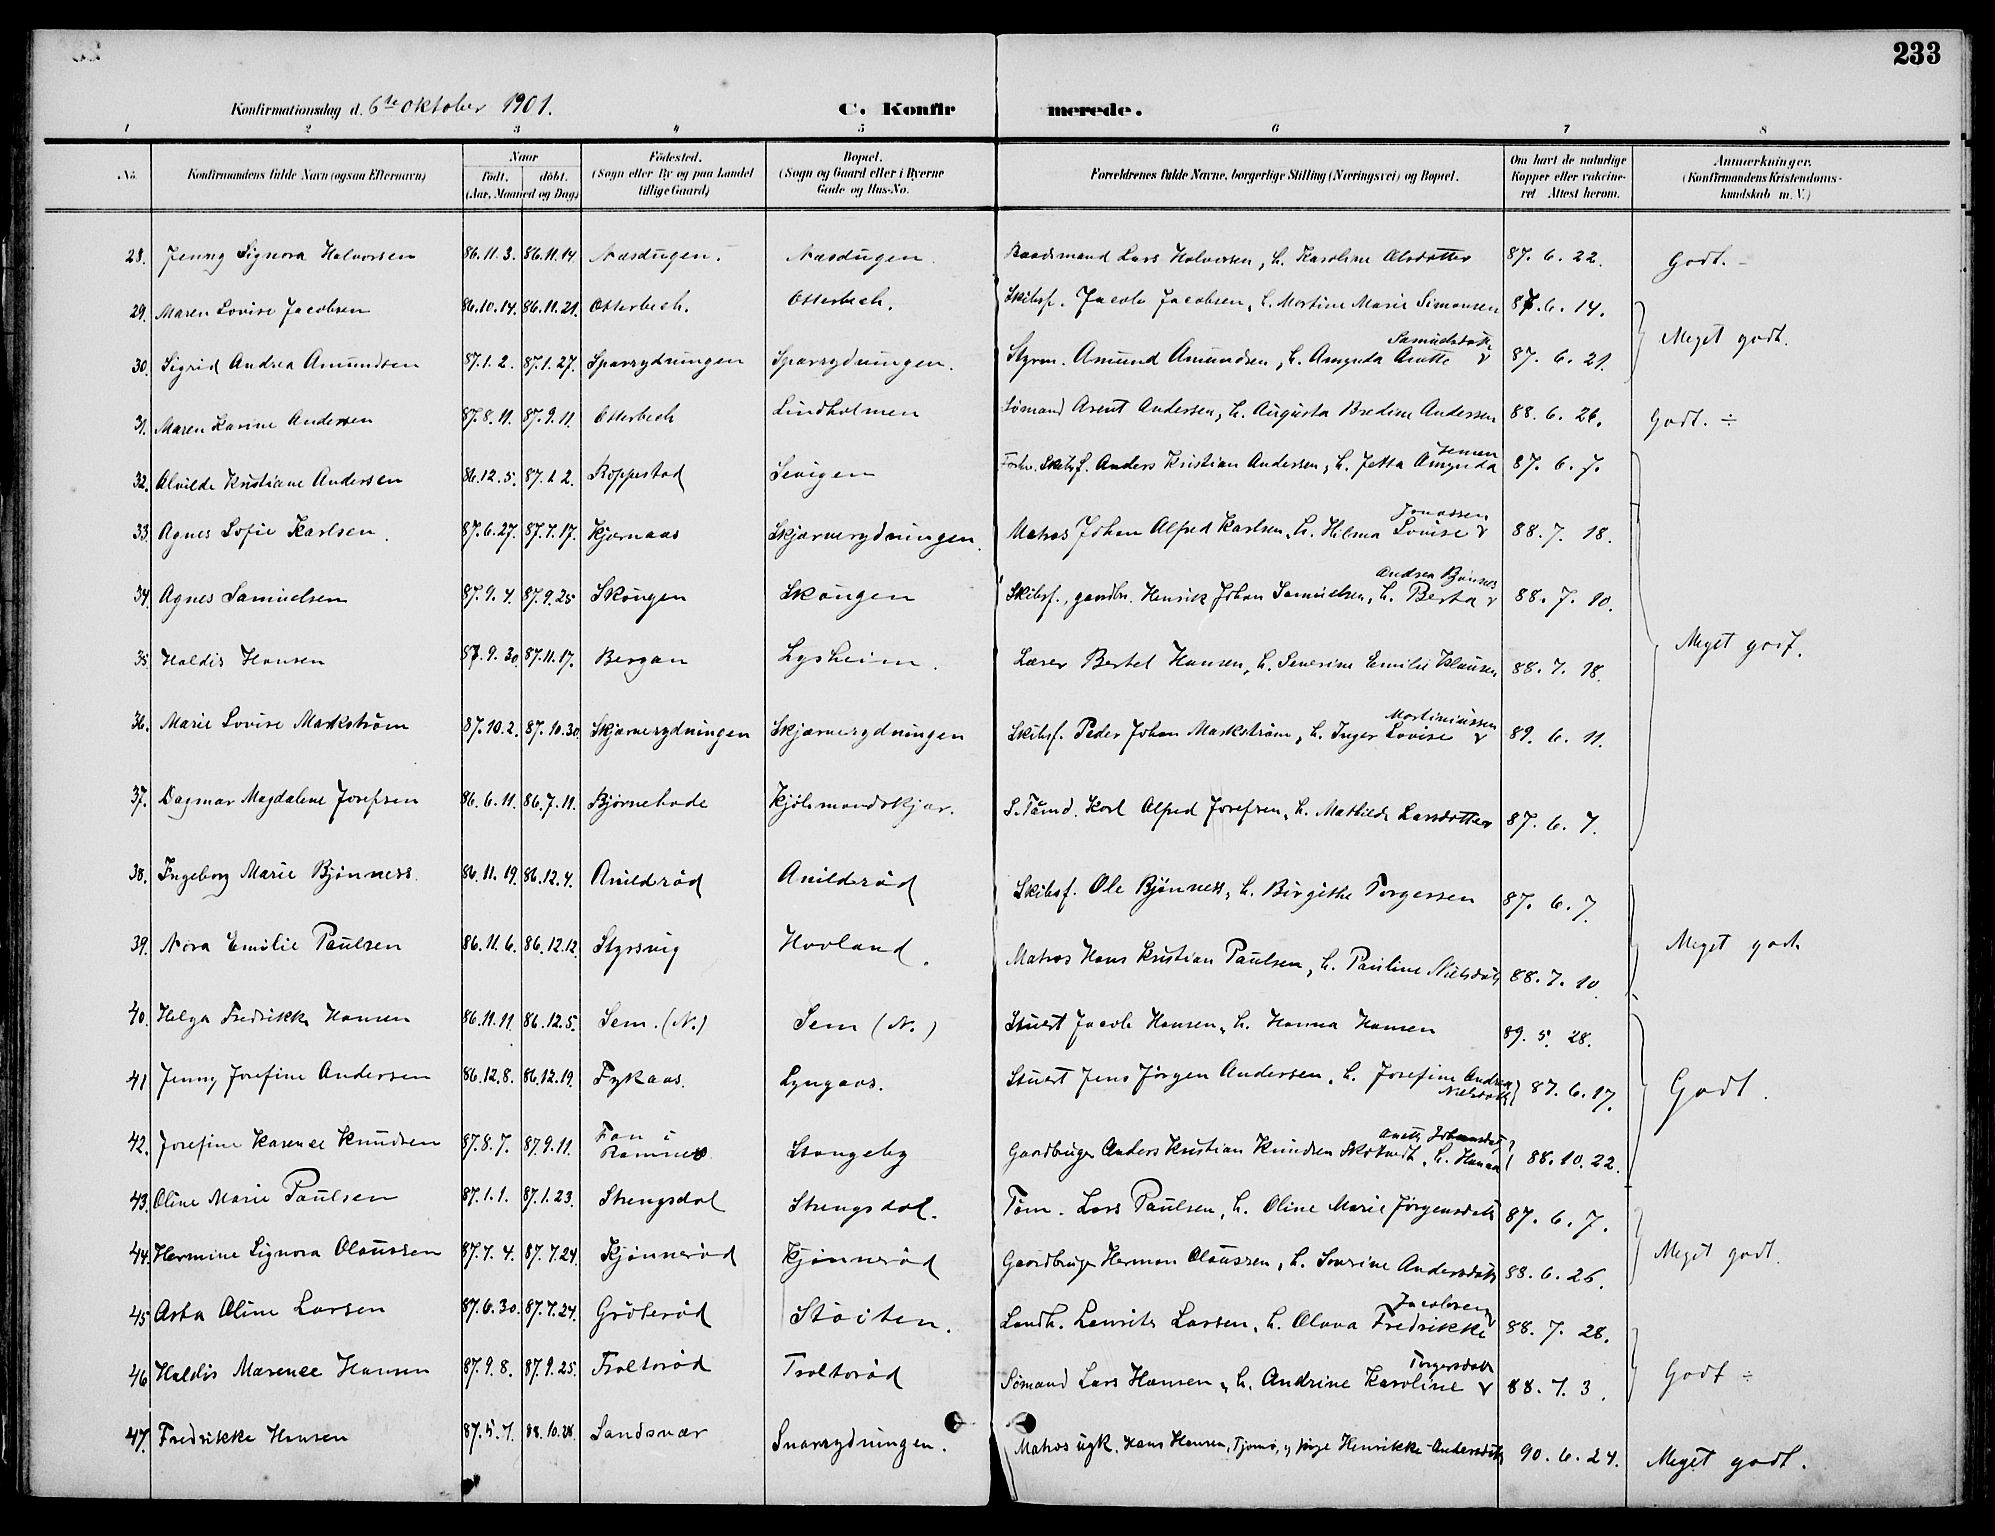 233
Konfirmationsdag d. 6te oktober 1901. C. Konfirmerede.
1 2 3 4 5 6 7 8
No. Konfirmandens fulde Navn (ogsaa Efternavn) Naar födt. döbt. (Aar, Maaned og Dag) Födested. (Sogn eller By og paa Landet tillige Gaard) Bopæl. (Sogn og Gaard eller i Byerne Gade og Hus-No. Forældrenes fulde Navne, borgerlige Stilling (Næringsvei) og Bopæl. Om havt de naturlige Kopper eller vakcineret Attest herom. Anmærkninger. (Konfirmandens Kristendomskundskab m. V.)
28. Jenny Signora Halvorsen 86.11.3. 86.11.14. Næsdugen. Næsdugen. Lars Halvorsen, h. Karoline Olsdotter 87. 6. 22. Godt. -
29. Maren Lovise Jacobsen 86.10.14. 86.11.21. Otterbech. Otterbech. Skibsf. Jacob Jacobsen, h. Martine Marie Simonsen 87. 6. 14.
Meget godt.
30. Sigrid Andrea Amundsen 87.1.2. 87.1.27. Sparrydningen Sparrydningen. Styrm. Amund Amundsen, h. Amynda Anette Samuelsdatt 87. 6. 21.
31. Maren Karine Andersen 87.8.11. 87.9.11. Otterbech Lindholmen Sømand Arent Andersen, h. Augusta Bredine Andersen 88. 6. 26. Godt. ÷
32. Alvilde Kristiane Andersen 86.12.5. 87.1.2. Roppestad Sevigen Forhv. Skibsf. Anders Kristian Andersen, h. Jetta Amynda 87. 6. 7.
33. Agnes Sofie Karlsen. 87.6.27. 87.7.17. Kjærnaas Skjærverydningen. Matros Johan Alfred Karlsen, h. Hilma Lovise Jonassen 88. 7. 18.
34. Agnes Samuelsen 87.9.4. 87.9.25 Skøugen Skougen Skibsf., gaardbr. Henrik Johan Samuelsen, h. Berta Andrea Bjønnes 88. 7. 10.
35 Haldis Hansen 87.9.30 87.11.17. Bergan Lysheim. Lærer Bertel Hansen, h. Severine Emilie Klausen 88. 7. 18.
Meget godt.
36. Marie Lovise Markstrøm 87.10.2. 87.10.30 Skjærverydningen Skjærverydningen Skibsf. Peder Johan Markstrøm, h. Inger Lovise Martiniussen 89. 6. 11.
37. Dagmar Magdalene Josefsen 86.6.11. 86.7.11. Bjørnebode Kjølsmandskjær. S. Tømd. Karl Alfred Josefsen, h. Mathilde Larsdotter 87. 6. 7.
38. Ingeborg Marie Bjønness. 86.11.19. 86.12.4. Anildsrød Anildsrød Skibsf. Ole Bjønness, h. Birgithe Torgersen 87. 6. 7.
39. Nora Emilie Paulsen 86.11.6. 86.12.12. Styrsvig Hovland. Matros Hans Kristian Paulsen, h. Pauline Nielsdatt 88. 7. 10.
Meget godt
40. Helga Fredrikke Hansen 86.11.11. 86.12.5. Sem. (N.) Sem (N.) Stuert Jacob Hansen, h. Hanna Hansen 89. 5. 28.
41 Jenny Josefine Andersen 86.12.8. 86.12.19. Fykaas. Lyngaas. Stuert Jens Jörgen Andersen, h. Josefine Andrea Nielsdatt 87. 6. 17.
Godt.
42. Josefine Karence Knudsen 87.8.7. 87.9.11. Fon i Ramnes Stangeby Gaardbruger Anders Kristian Knudsen, h. Hanna Anette Johansdatt 88. 10. 22.
43. Oline Marie Paulsen 87.1.1. 87.1.23. Strengsdal Strengsdal. Tøm. Lars Paulsen, h. Oline Marie Jørgensdatt 87. 6. 7.
44. Hermine Signora Olaussen 87.7.4. 87.7.24. Kjønnerød Kjønnerød Gaardbruger Herman Olaussen, h. Sourine Andersdatt 88. 6. 26.
Meget godt.
45 Asta Oline Larsen 87.6.30. 87.7.24. Grøterød Støiten. Landh. Lauritz Larsen, h. Olava Fredrikke Jacobsen 88. 7. 28.
46 Haldis Marence Hansen 87.9.8. 87.9.25. Troltorød Troltorød Sømand Lars Hansen, h. Andrine Karoline Torgersdatt 88. 7. 3.
Godt ÷
47. Fredrikke Hansen 87.5.7. 88.10.28. Sandsvær Snarrydningen. Matros ugk. Hans Hansen, Tjømø, og pige Henrikke Andersdatt 90. 6. 24. Meget godt.